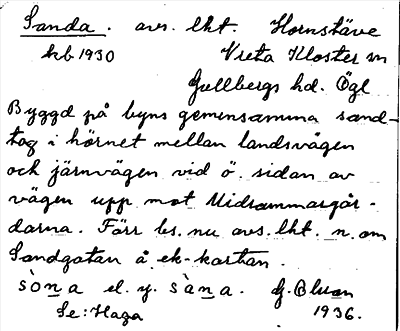 Sanda. avs. lht. Hornstäve
kb 1930 Vreta Kloster sn
Gullbergs hd. Ögl
Byggd på byns gemensamma sand-
tag i hörnet mellan landsvägen
och järnvägen vid ö. sidan av
vägen upp mot Midsommargår-
darna. Förr bs. nu avs. lht. n. om
Sandgatan å ek-kartan.
sòna el. y. sàna. G. Bluan
Se: Haga 1936.